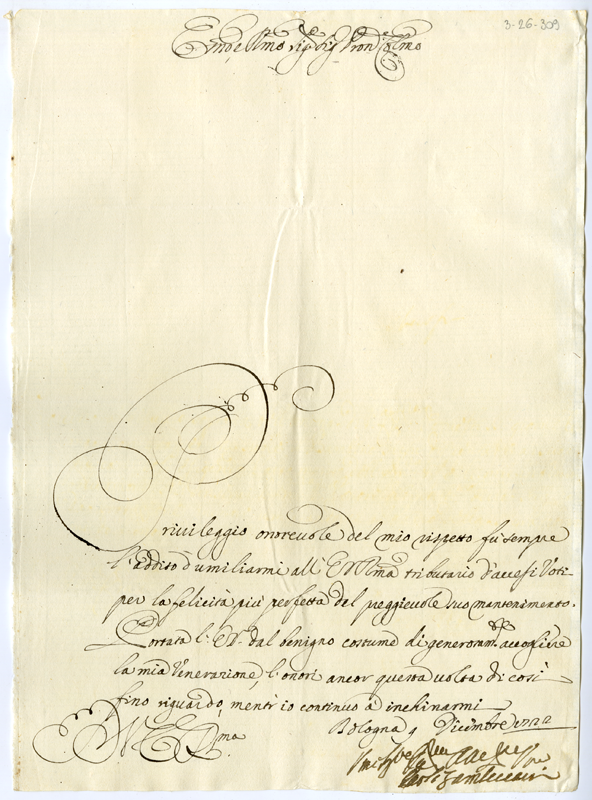 3-26-309
Em.o e Rmo Sig.r Sig.r Pron Colmo
Privileggio onorevole del mio rispetto fù sempre
l'addito d'umiliarmi all' E V Rma tributario d'accesi Voti
per la felicità più perfetta del preggievole suo mantenimento.
Portata l' E V. dal benigno costume di generosam.te accogliere
la mia Venerazione, l'onori ancor questa volta di così
fino riguardo, mentr' io continuo à inchinarmi
Bologna 9 Dicembre
V E Rma